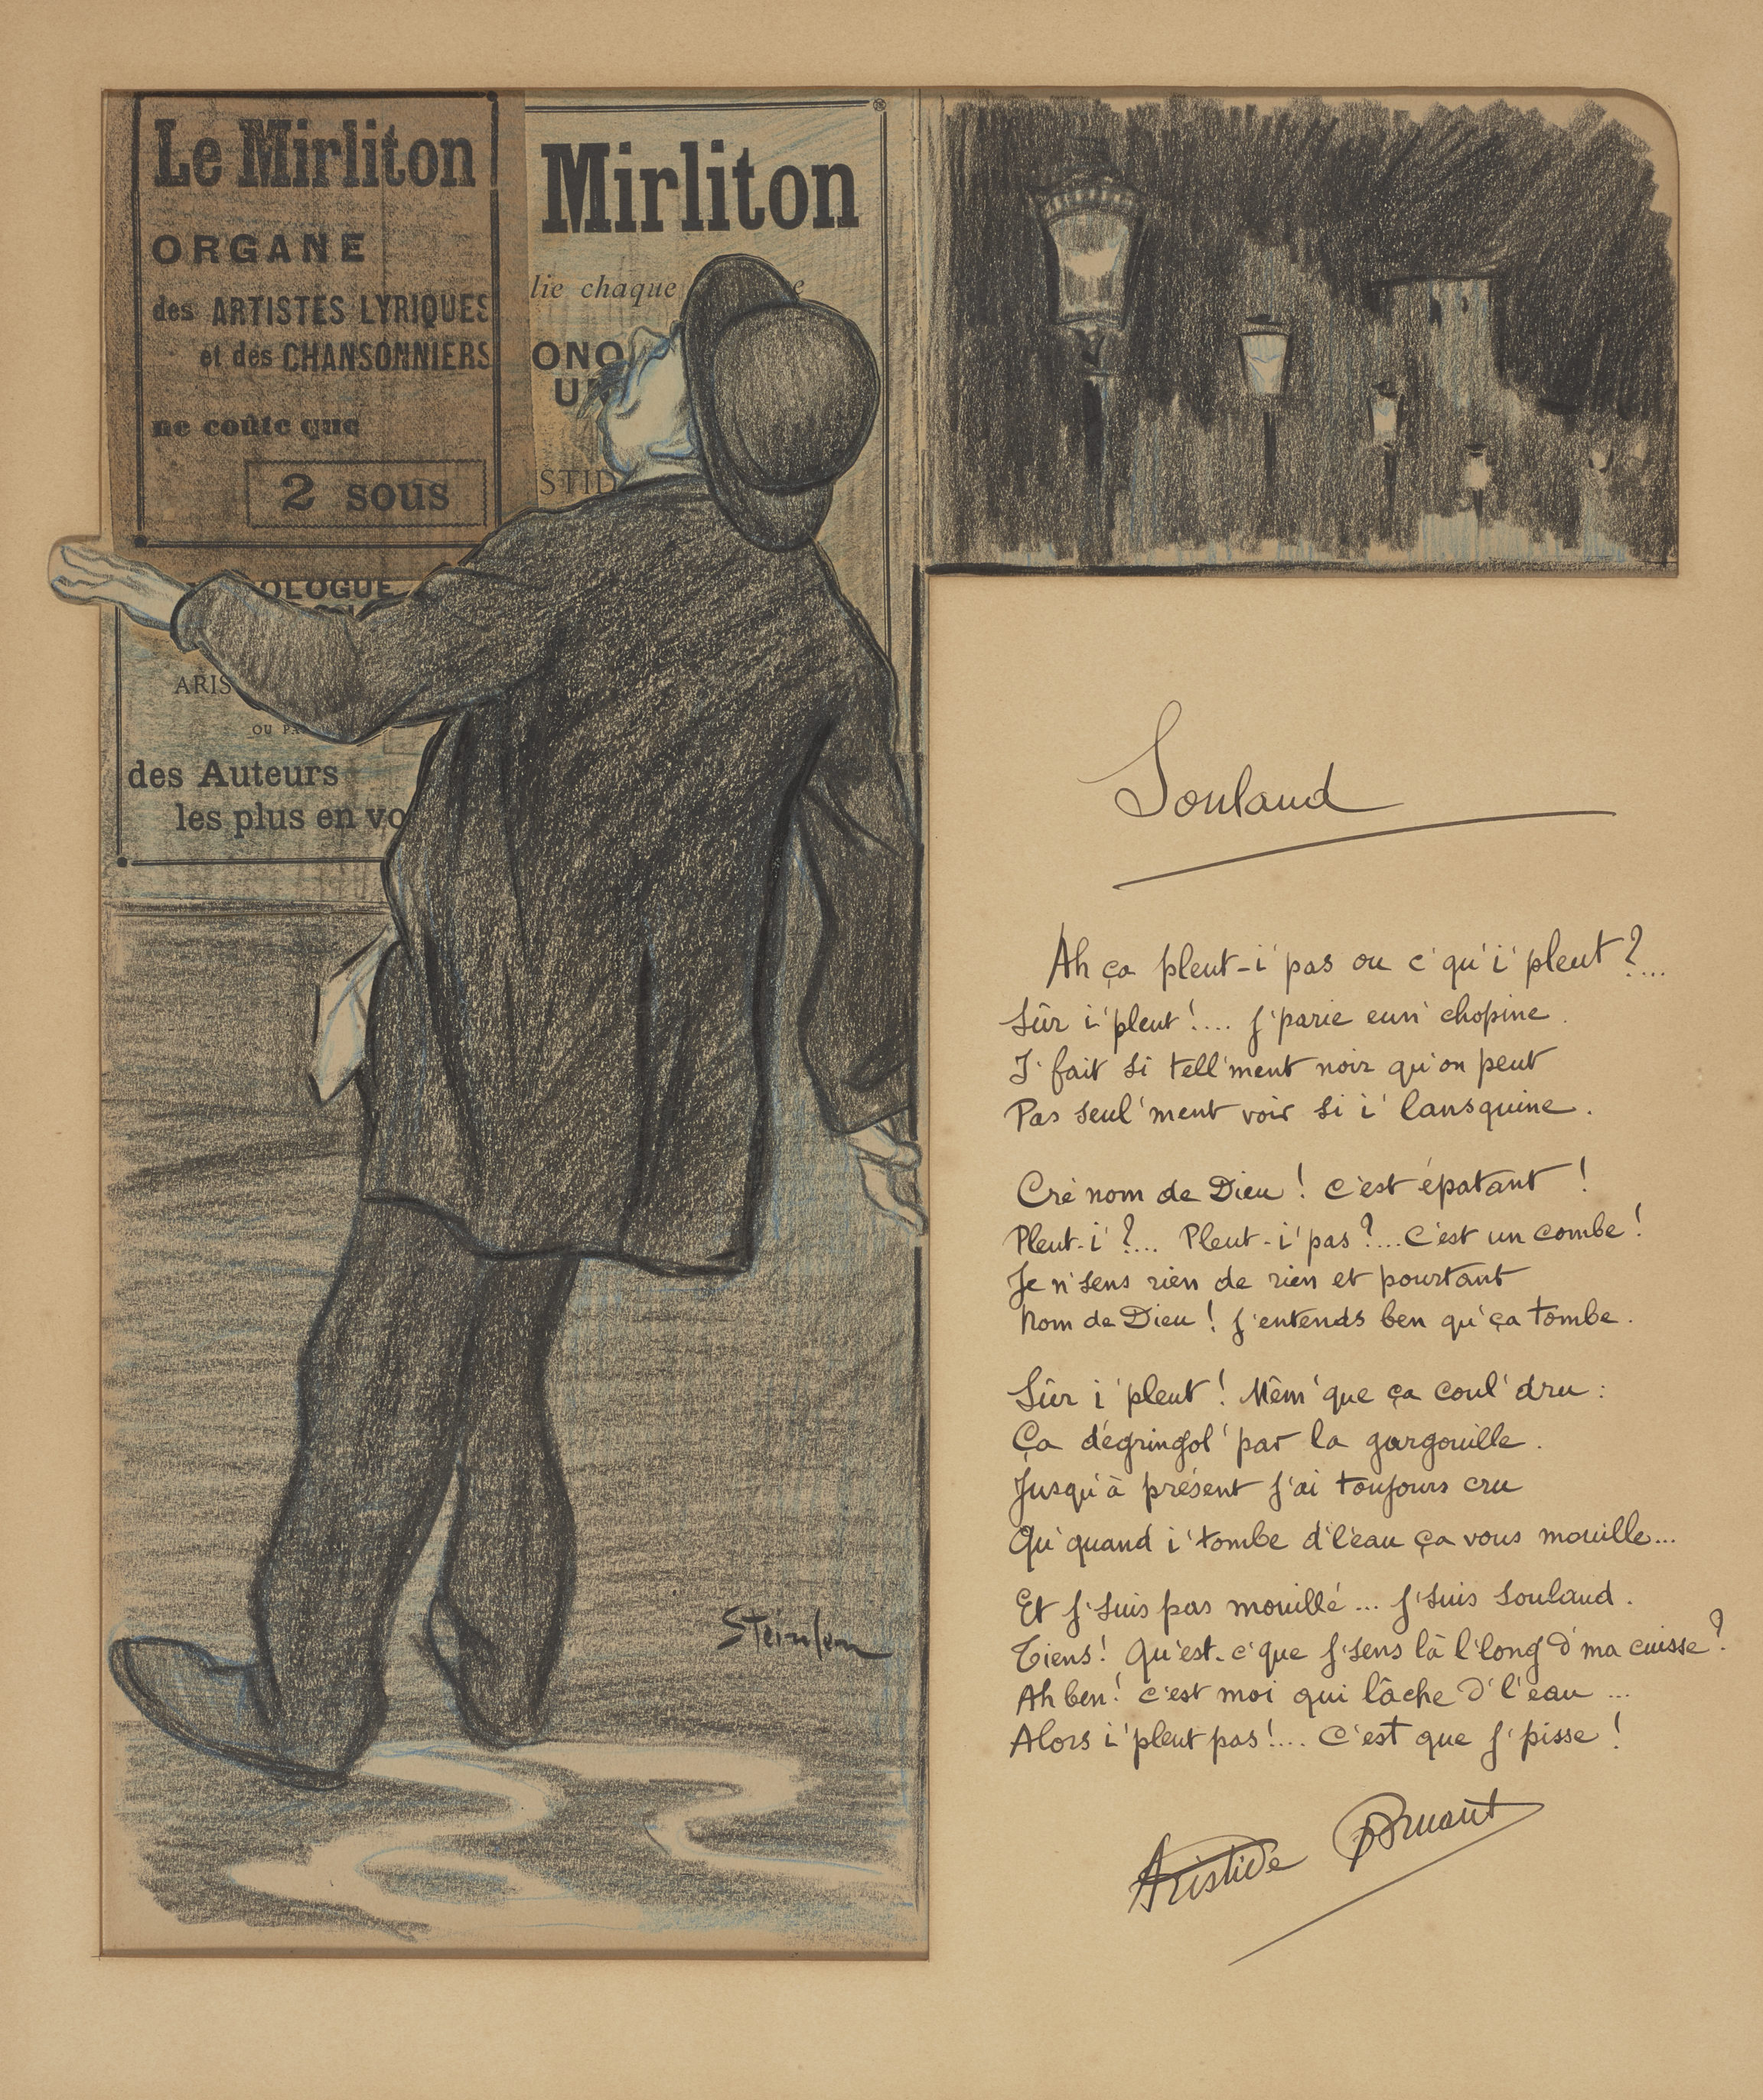 Le Mirliton
ORGANE
des ARTISTES LYRIQUES
et des CHANSONNIERS
ne coûte que
2 sous
OLOGUE
ARIS
OU PA
des Auteurs
les plus en vo
Mirliton
lie chaque e
ONO
U
STID
Steinlen
Soulaud
Ah ça pleut-i' pas ou c'qu'i' pleut ?...
Sûr i' pleut !.... j'parie eun' chopine.
I' fait si tell'ment noir qu'on peut
Pas seul'ment voir si i' lansquine.
Cré nom de Dieu ! c'est épatant !
Pleut-i' ?... Pleut-i' pas ?... C'est un combe !
Je n'sens rien de rien et pourtant
Nom de Dieu ! j'entends ben qu'ça tombe.
Sûr i' pleut ! Mêm' que ça coul' dru :
Ça dégringol' par la gargouille.
Jusqu'à présent j'ai toujours cru
Qu'quand i' tombe d'l'eau ça vous mouille...
Et j'suis pas mouillé... j'suis soulaud.
Tiens ! Qu'est-c'que j'sens là l'long d'ma cuisse ?
Ah ben ! c'est moi qui lâche d'l'eau ...
Alors i' pleut pas !.... C'est que j'pisse !
Aristide Bruant